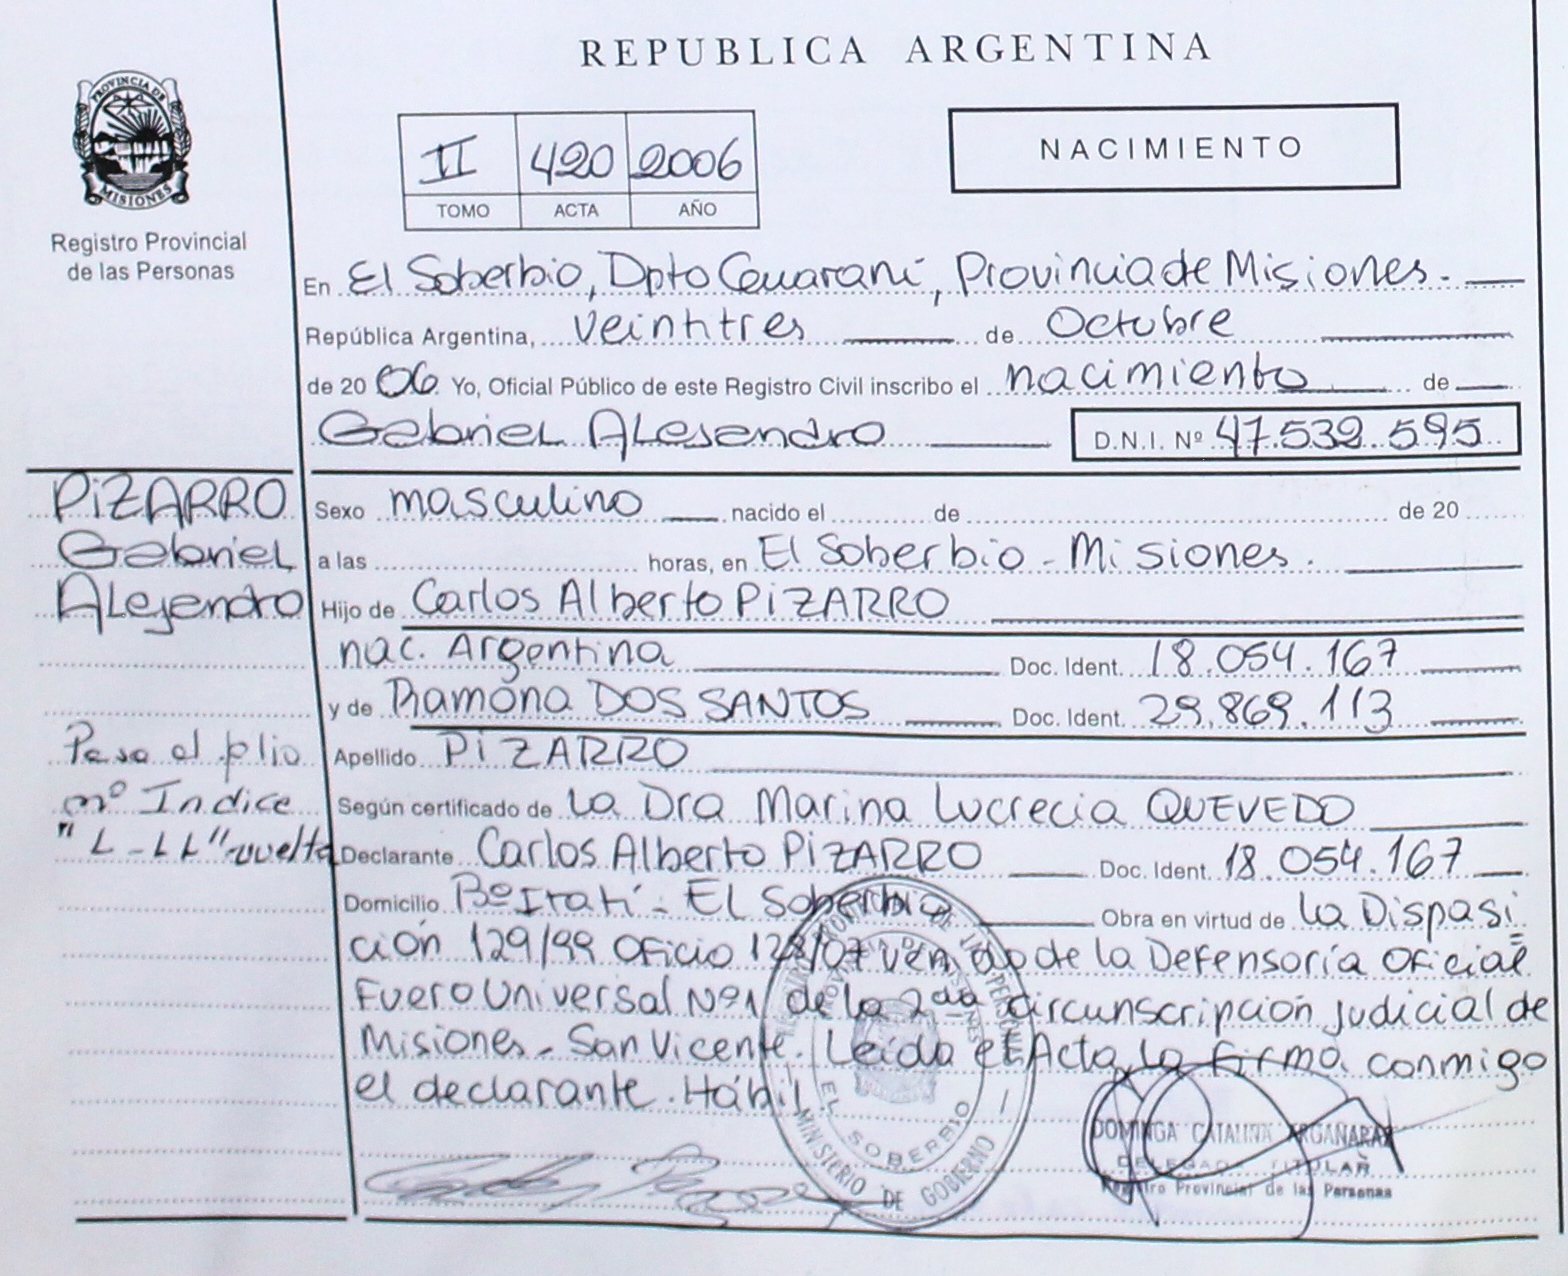 REPUBLICA ARGENTINA
PROVINCIA DE
MISIONES
Registro Provincial
de las Personas
II 420 2006
TOMO ACTA AÑO
NACIMIENTO
En El Soberbio, Dpto Guaraní, Provincia de Misiones.
República Argentina, veintitres de Octubre
de 20 06 Yo, Oficial Público de este Registro Civil inscribo el nacimiento de
Gabriel Alejandro D.N.I. Nº 47.532.595
PIZARRO
Gabriel
Alejandro
Sexo masculino nacido el de de 20
a las horas, en El Soberbio - Misiones.
Hijo de Carlos Alberto PIZARRO
nac. Argentina Doc. Ident. 18.054.167
y de Ramona DOS SANTOS Doc. Ident. 29.869.113
Apellido PIZARRO
Pasa al folio
nº Indice
"L-LL" vuelta
Según certificado de La Dra Marina Lucrecia QUEVEDO
Declarante Carlos Alberto PIZARRO Doc. Ident. 18.054.167
Domicilio Bº Itatí - El Soberbio Obra en virtud de La Disposi
ción 129/99 Oficio 128/07 venido de la Defensoría Oficial
Fuero Universal Nº1 de la 2da circunscripción judicial de
Misiones - San Vicente. Leída el Acta, la firma conmigo
el declarante. Hábil
EL SOBERBIO
MINISTERIO DE GOBIERNO
DOMINGA CATALINA ARGAÑARAZ
DELEGADA TITULAR
Registro Provincial de las Personas